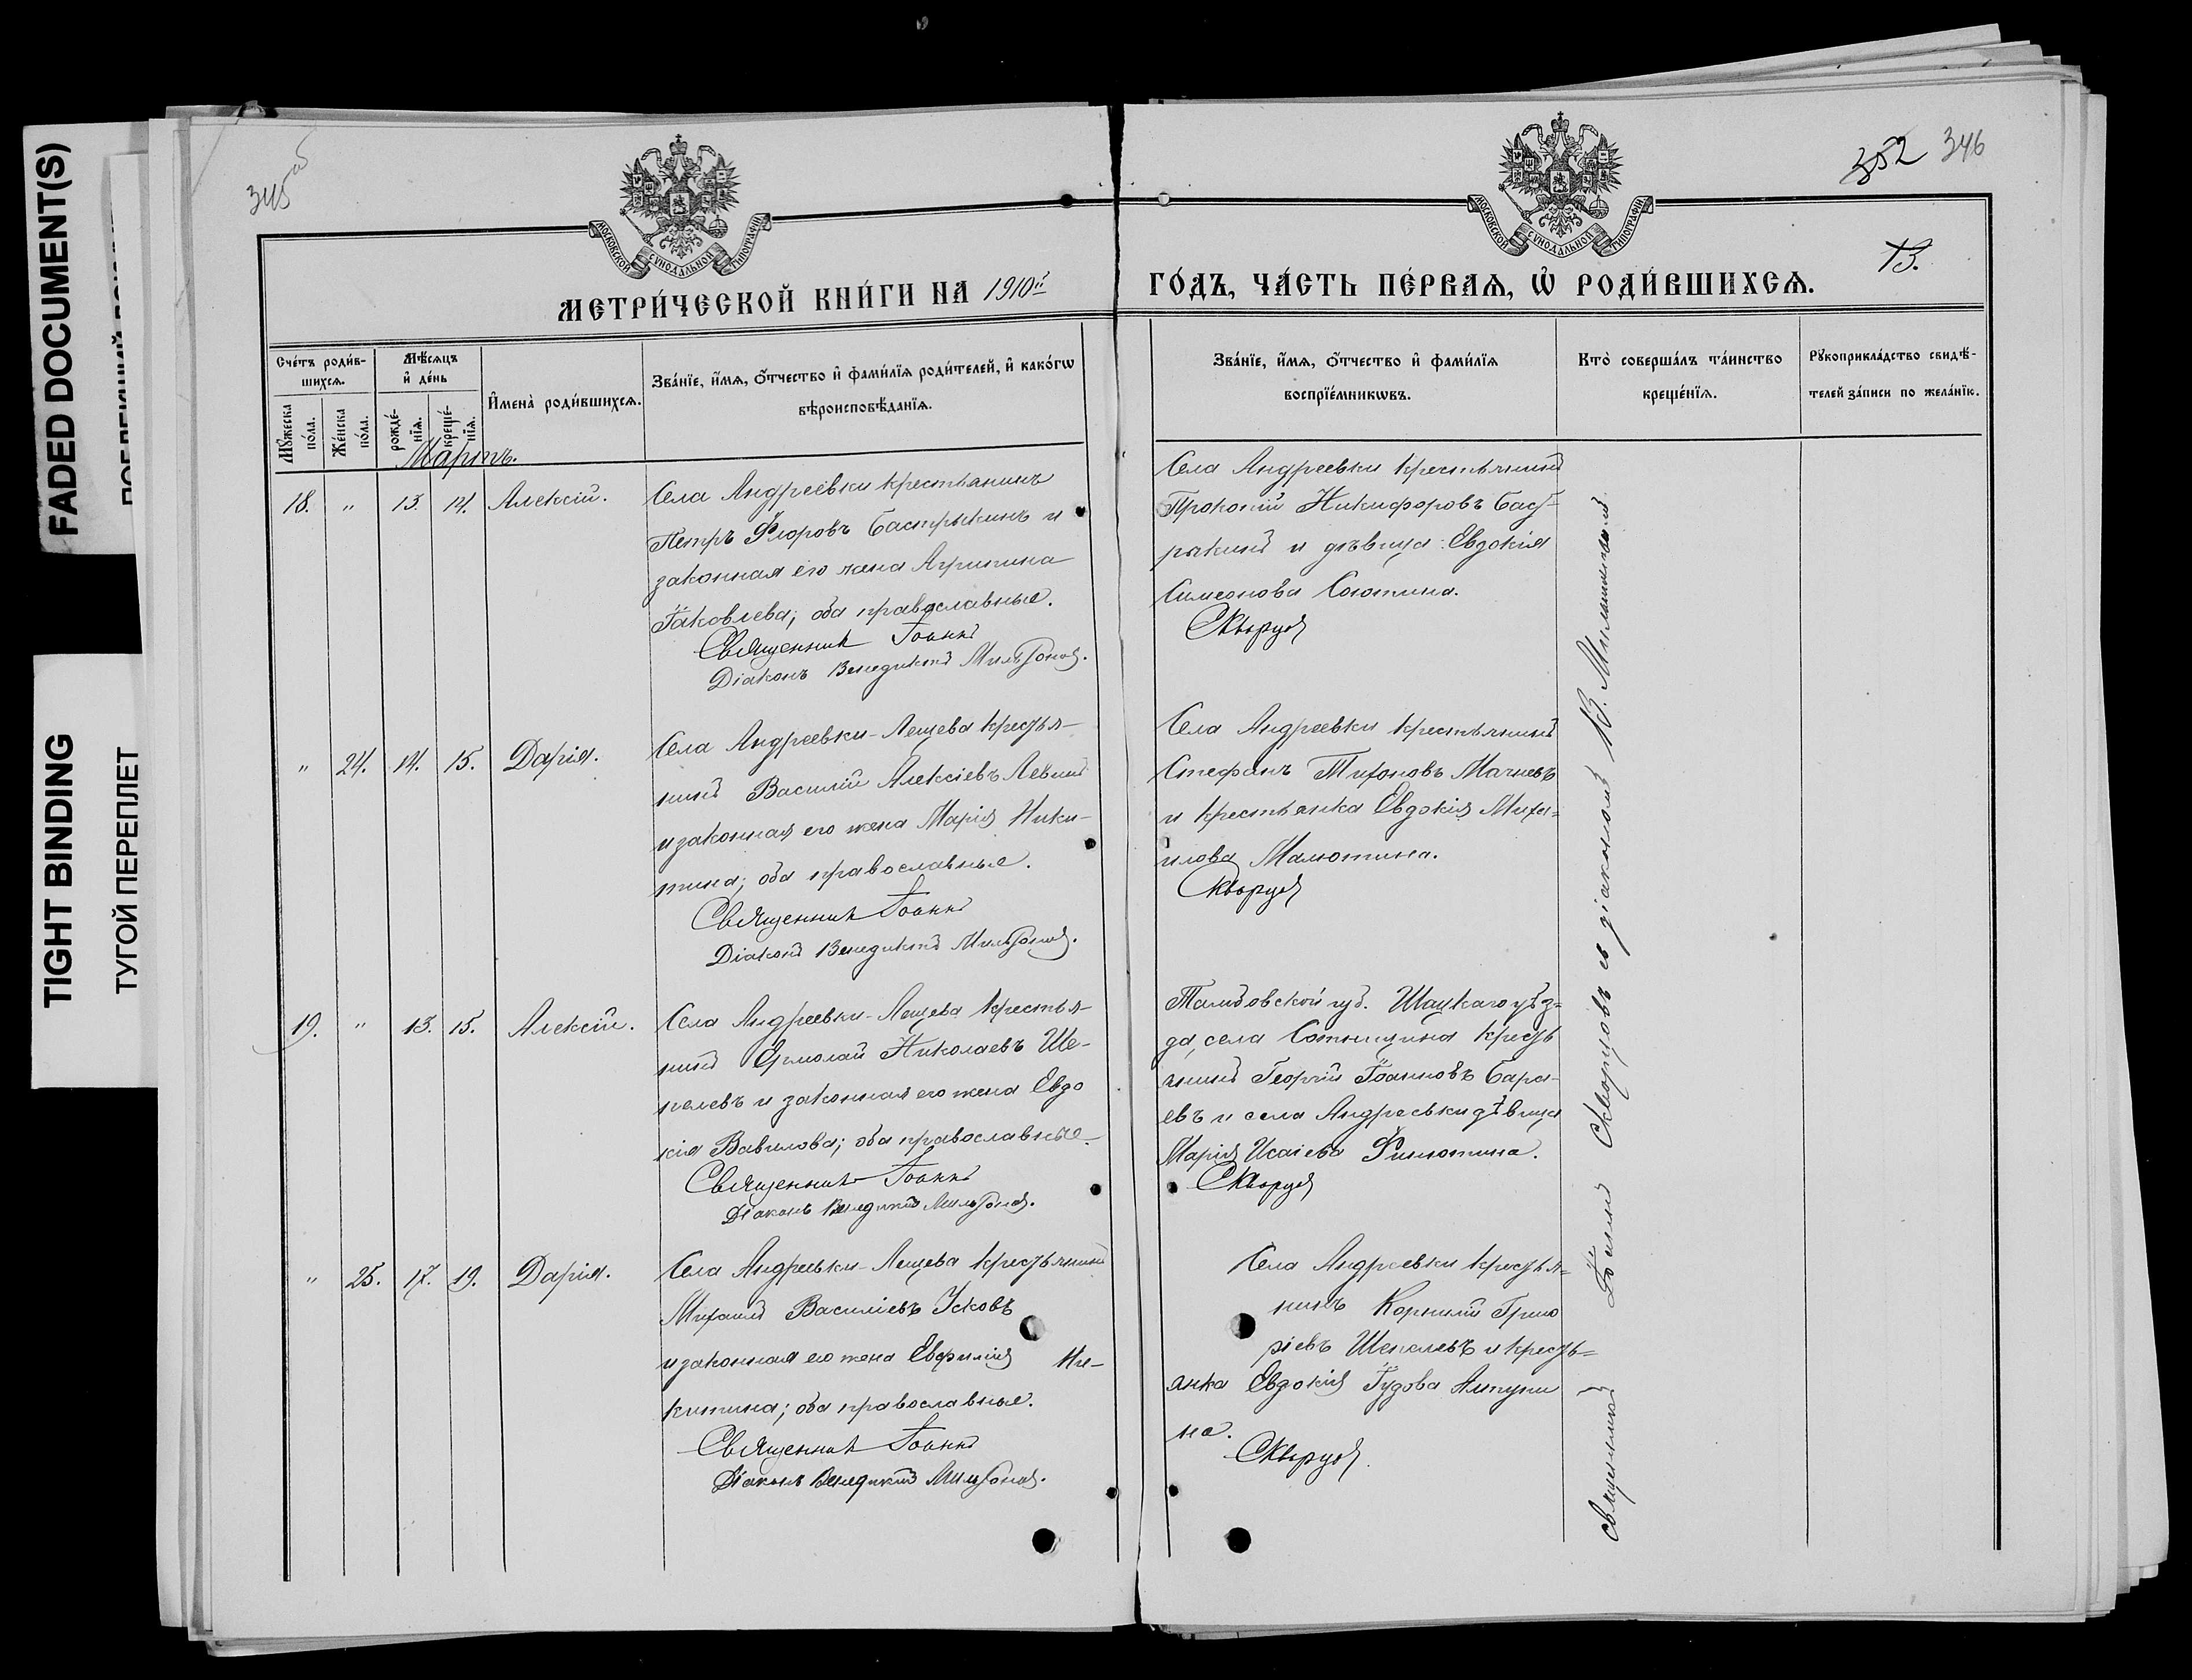 FADED DOCUMENT(S)
TIGHT BINDING
ТУГОЙ ПЕРЕПЛЕТ
345 об
352 346
13.
МОСКОВСКОЙ СѴНОДАЛЬНОЙ ТИПОГРАФІИ
МОСКОВСКОЙ СѴНОДАЛЬНОЙ ТИПОГРАФІИ
МЕТРИ́ЧЕСКОЙ КНИ́ГИ НА 1910й ГО́ДЪ, ЧА́СТЬ ПЕ́РВАѦ, Ѡ҆ РОДИ́ВШИХСѦ.
Сче́тъ роди́в-
шихсѧ.
Мꙋ́жеска по́ла.
Же́нска по́ла.
Мѣ́сѧцъ
и҆ де́нь
рожде́-
нїѧ.
креще́-
нїѧ.
И҆мена̀ роди́вшихсѧ.
Зва́нїе, и҆́мѧ, ѻ҆́тчество и҆ фами́лїѧ роди́телей, и҆ како́гѡ
вѣроисповѣ́данїѧ.
Зва́нїе, и҆́мѧ, ѻ҆́тчество и҆ фами́лїѧ
воспрїе́мникѡвъ.
Кто̀ соверша́лъ та́инство
креще́нїѧ.
Рꙋкоприкла́дство свидѣ́-
телей за́писи по жела́нїю.
Мартъ.
18. " 13. 14. Алексій.
Села Андреевки крестьянинъ
Петръ Ѳедоровъ Бастрыкинъ и
законная его жена Агрипина
Іаковлева; оба православные.
Священникъ Іоаннъ
Діаконъ Венедиктъ
Села Андреевки крестьянинъ
Прокопій Никифоровъ Баст-
рыкинъ и дѣвица Евдокія
Симеонова Сютина.
Скворцов
" 24. 14. 15. Дарія.
Села Андреевки-Лещева крестья-
нинъ Василій Алексіевъ Левинъ
и законная его жена Марія Ники-
тина; оба православные.
Священникъ Іоаннъ
Діаконъ Венедиктъ
Села Андреевки крестьянинъ
Стефанъ Тихоновъ Мачневъ
и крестьянка Евдокія Миха-
илова Малютина.
Скворцов
19. " 13. 15. Алексій.
Села Андреевки-Лещева крестья-
нинъ Ермолай Николаевъ Ше-
пелевъ и законная его жена Евдо
кія Вавилова; оба православные.
Священникъ Іоаннъ
Діаконъ Венедиктъ
Тамбовской губ. Шацкаго уѣз-
да, села Сотницина кресть
янинъ Георгій Іоанновъ Бара-
евъ и села Андреевки дѣвица
Марія Исаіева Филютина.
Скворцов
" 25. 17. 19. Дарія.
Села Андреевки-Лещева крестьянинъ
Михаилъ Василіевъ Усковъ
и законная его жена Евфимія Ни-
китина; оба православные.
Священникъ Іоаннъ
Діаконъ Венедиктъ
Села Андреевки крестья-
нинъ Корнилій Григо
ріевъ Шепелевъ и кресть-
янка Евдокія Іудова Алтупи
на.
Скворцов
Священникъ Іоаннъ Скворцовъ съ діакономъ В.